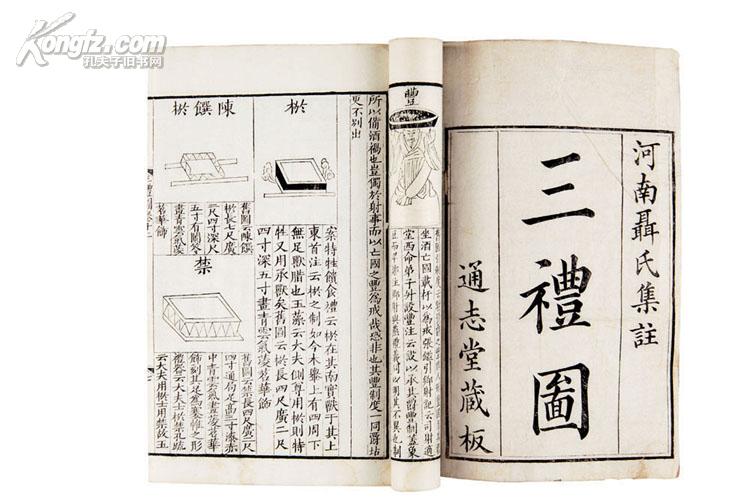 Kongfz.com
孔夫子旧书网
河南聶氏集註
三禮圖
通志堂蔵板
豊
坐酒亡國載杅以爲戒張鎰引鄉射記云司射適
堂西命弟子升設豊注云設以承其爵豊蓋象
所以備酒禍也豈獨於射事而以亡國之豊爲戒哉恐非也其豊制度一同爵坫
更不别出
棜
案特牲饋食禮云棜在其南實獸于其上
東首注云棜之制如今木轝上有四周下
無足獸腊也玉藻云大夫側尊用棜則特
牲又用承獸矣舊圖云棜長四尺廣二尺
四寸深五寸畫青雲氣菱苕華飾
陳饌棜
舊圖云陳饌
棜長七尺廣
二尺四寸深尺
五寸
畫青雲氣菱
苕華飾
禁
舊圖云禁長四尺廣二尺
四寸通局足高三寸漆赤
中青雲氣畫菱苕華
飾刻其足爲褰帷之形
禮器云大夫士棜禁孔疏
云大夫用棜士用禁故玉